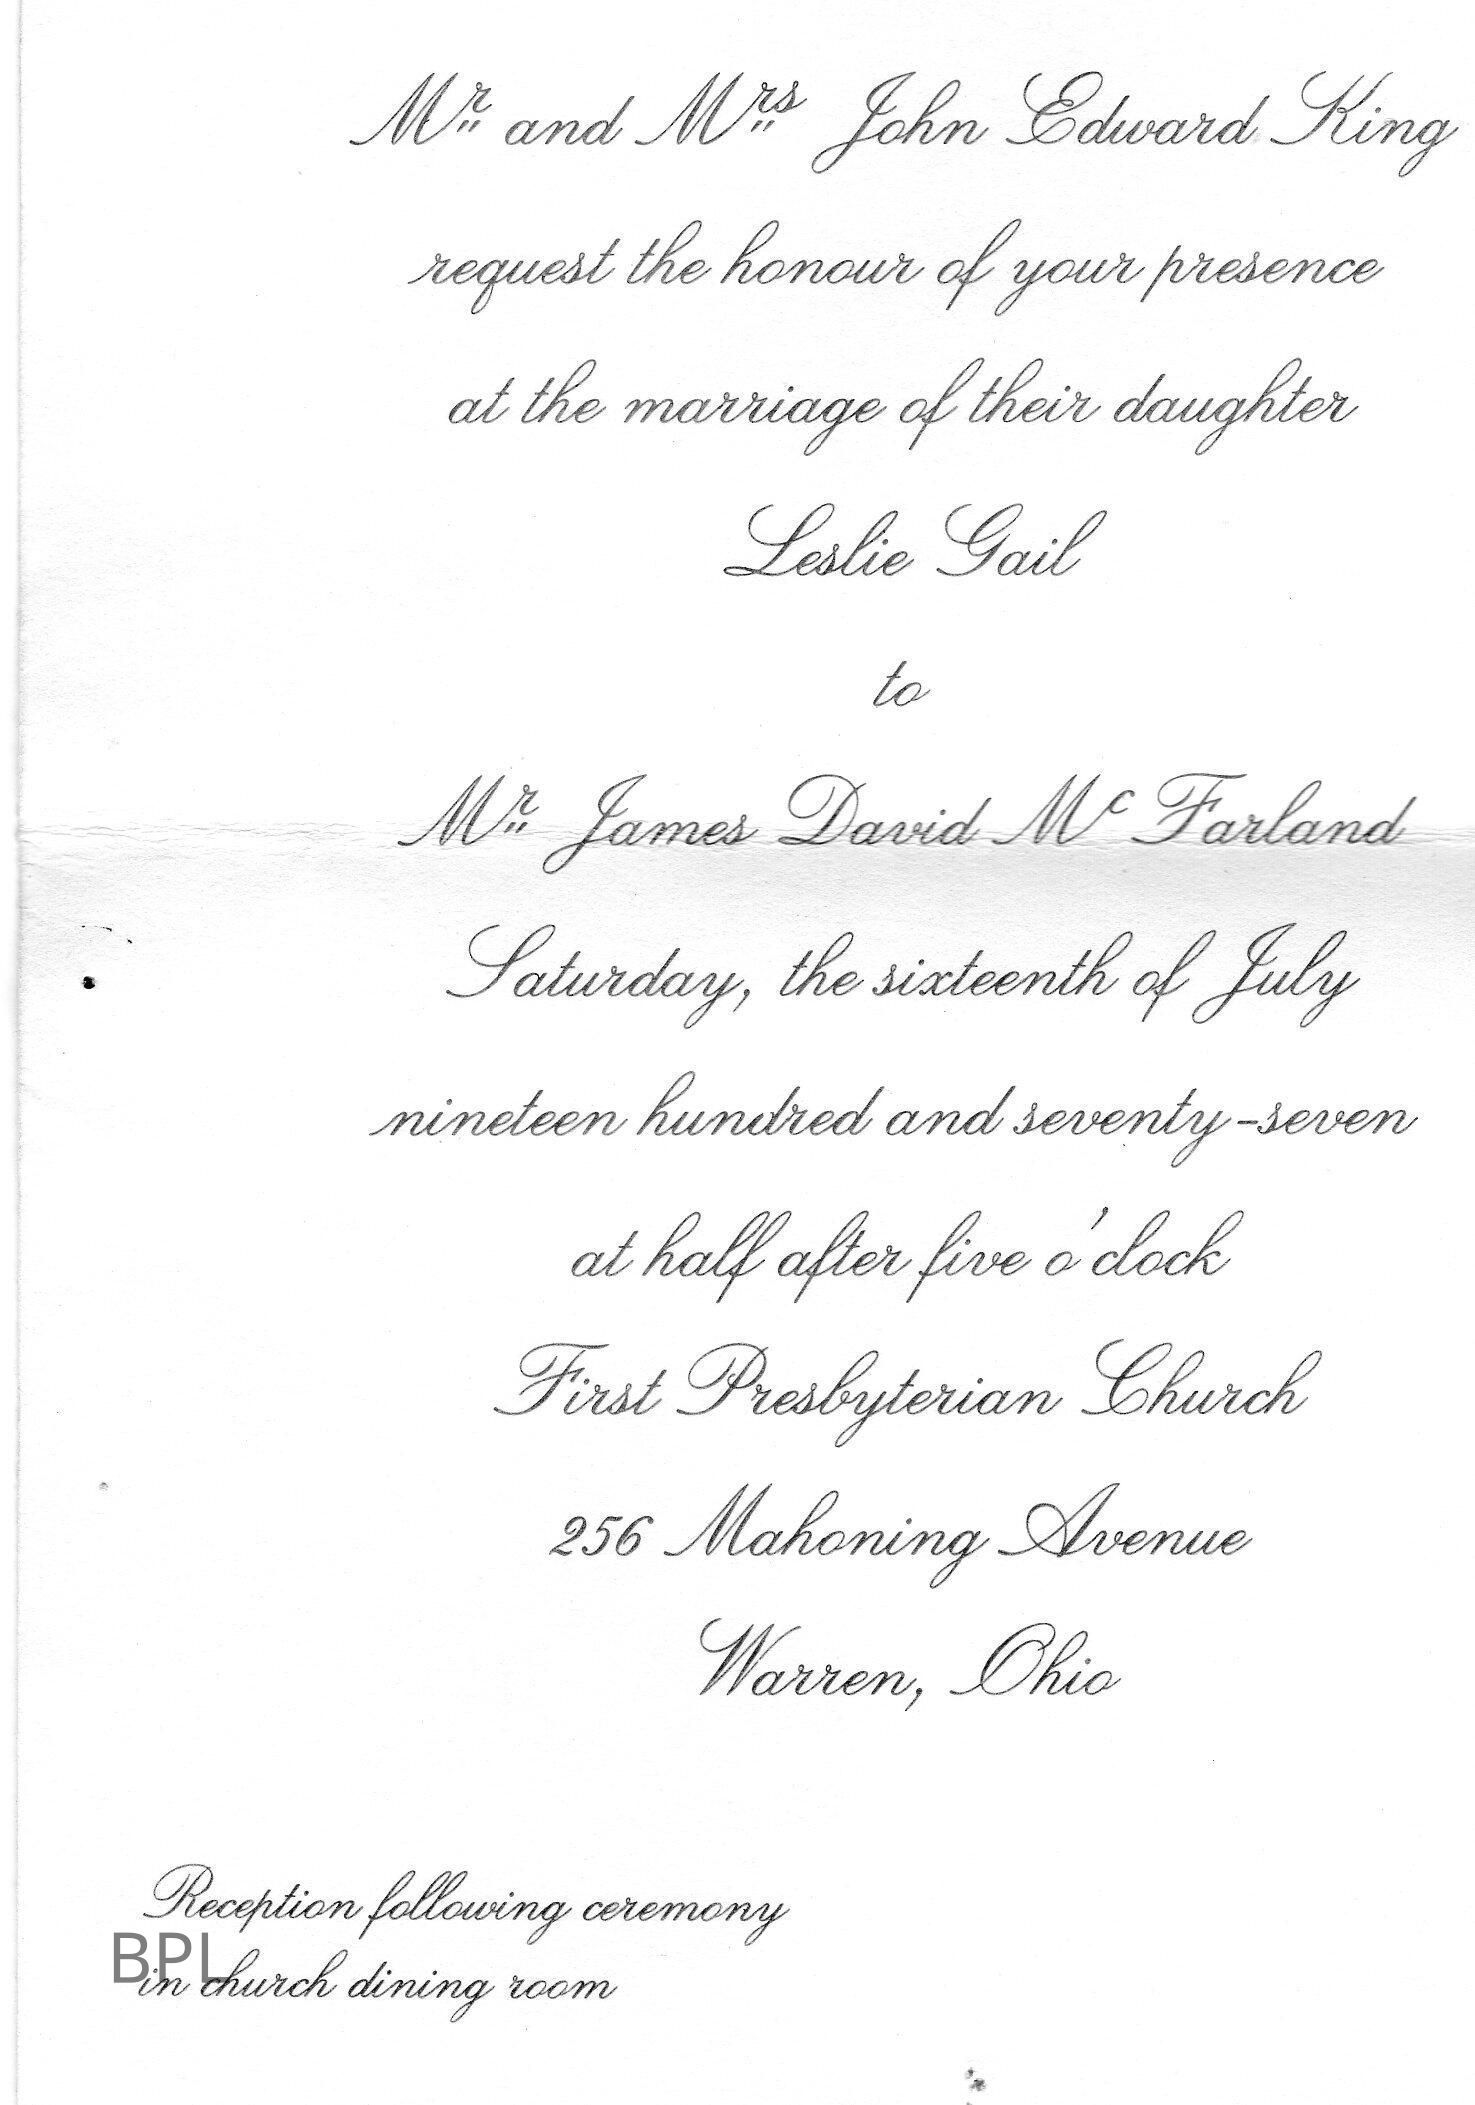 Mr. and Mrs. John Edward King
request the honour of your presence
at the marriage of their daughter
Leslie Gail
to
Mr. James David McFarland
Saturday, the sixteenth of July
nineteen hundred and seventy-seven
at half after five o'clock
First Presbyterian Church
256 Mahoning Avenue
Warren, Ohio
Reception following ceremony
BPL
in church dining room